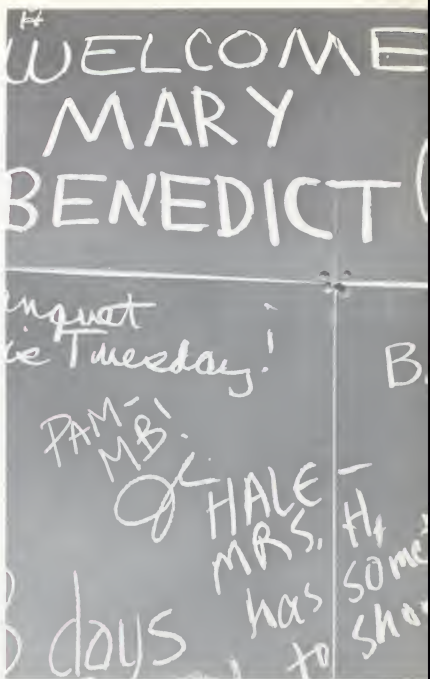 #
WELCOME
MARY
BENEDICT
nquet
is Tuesday!
PAM-
MB!
HALE-
MRS. H.
has some
to sho
B.
days